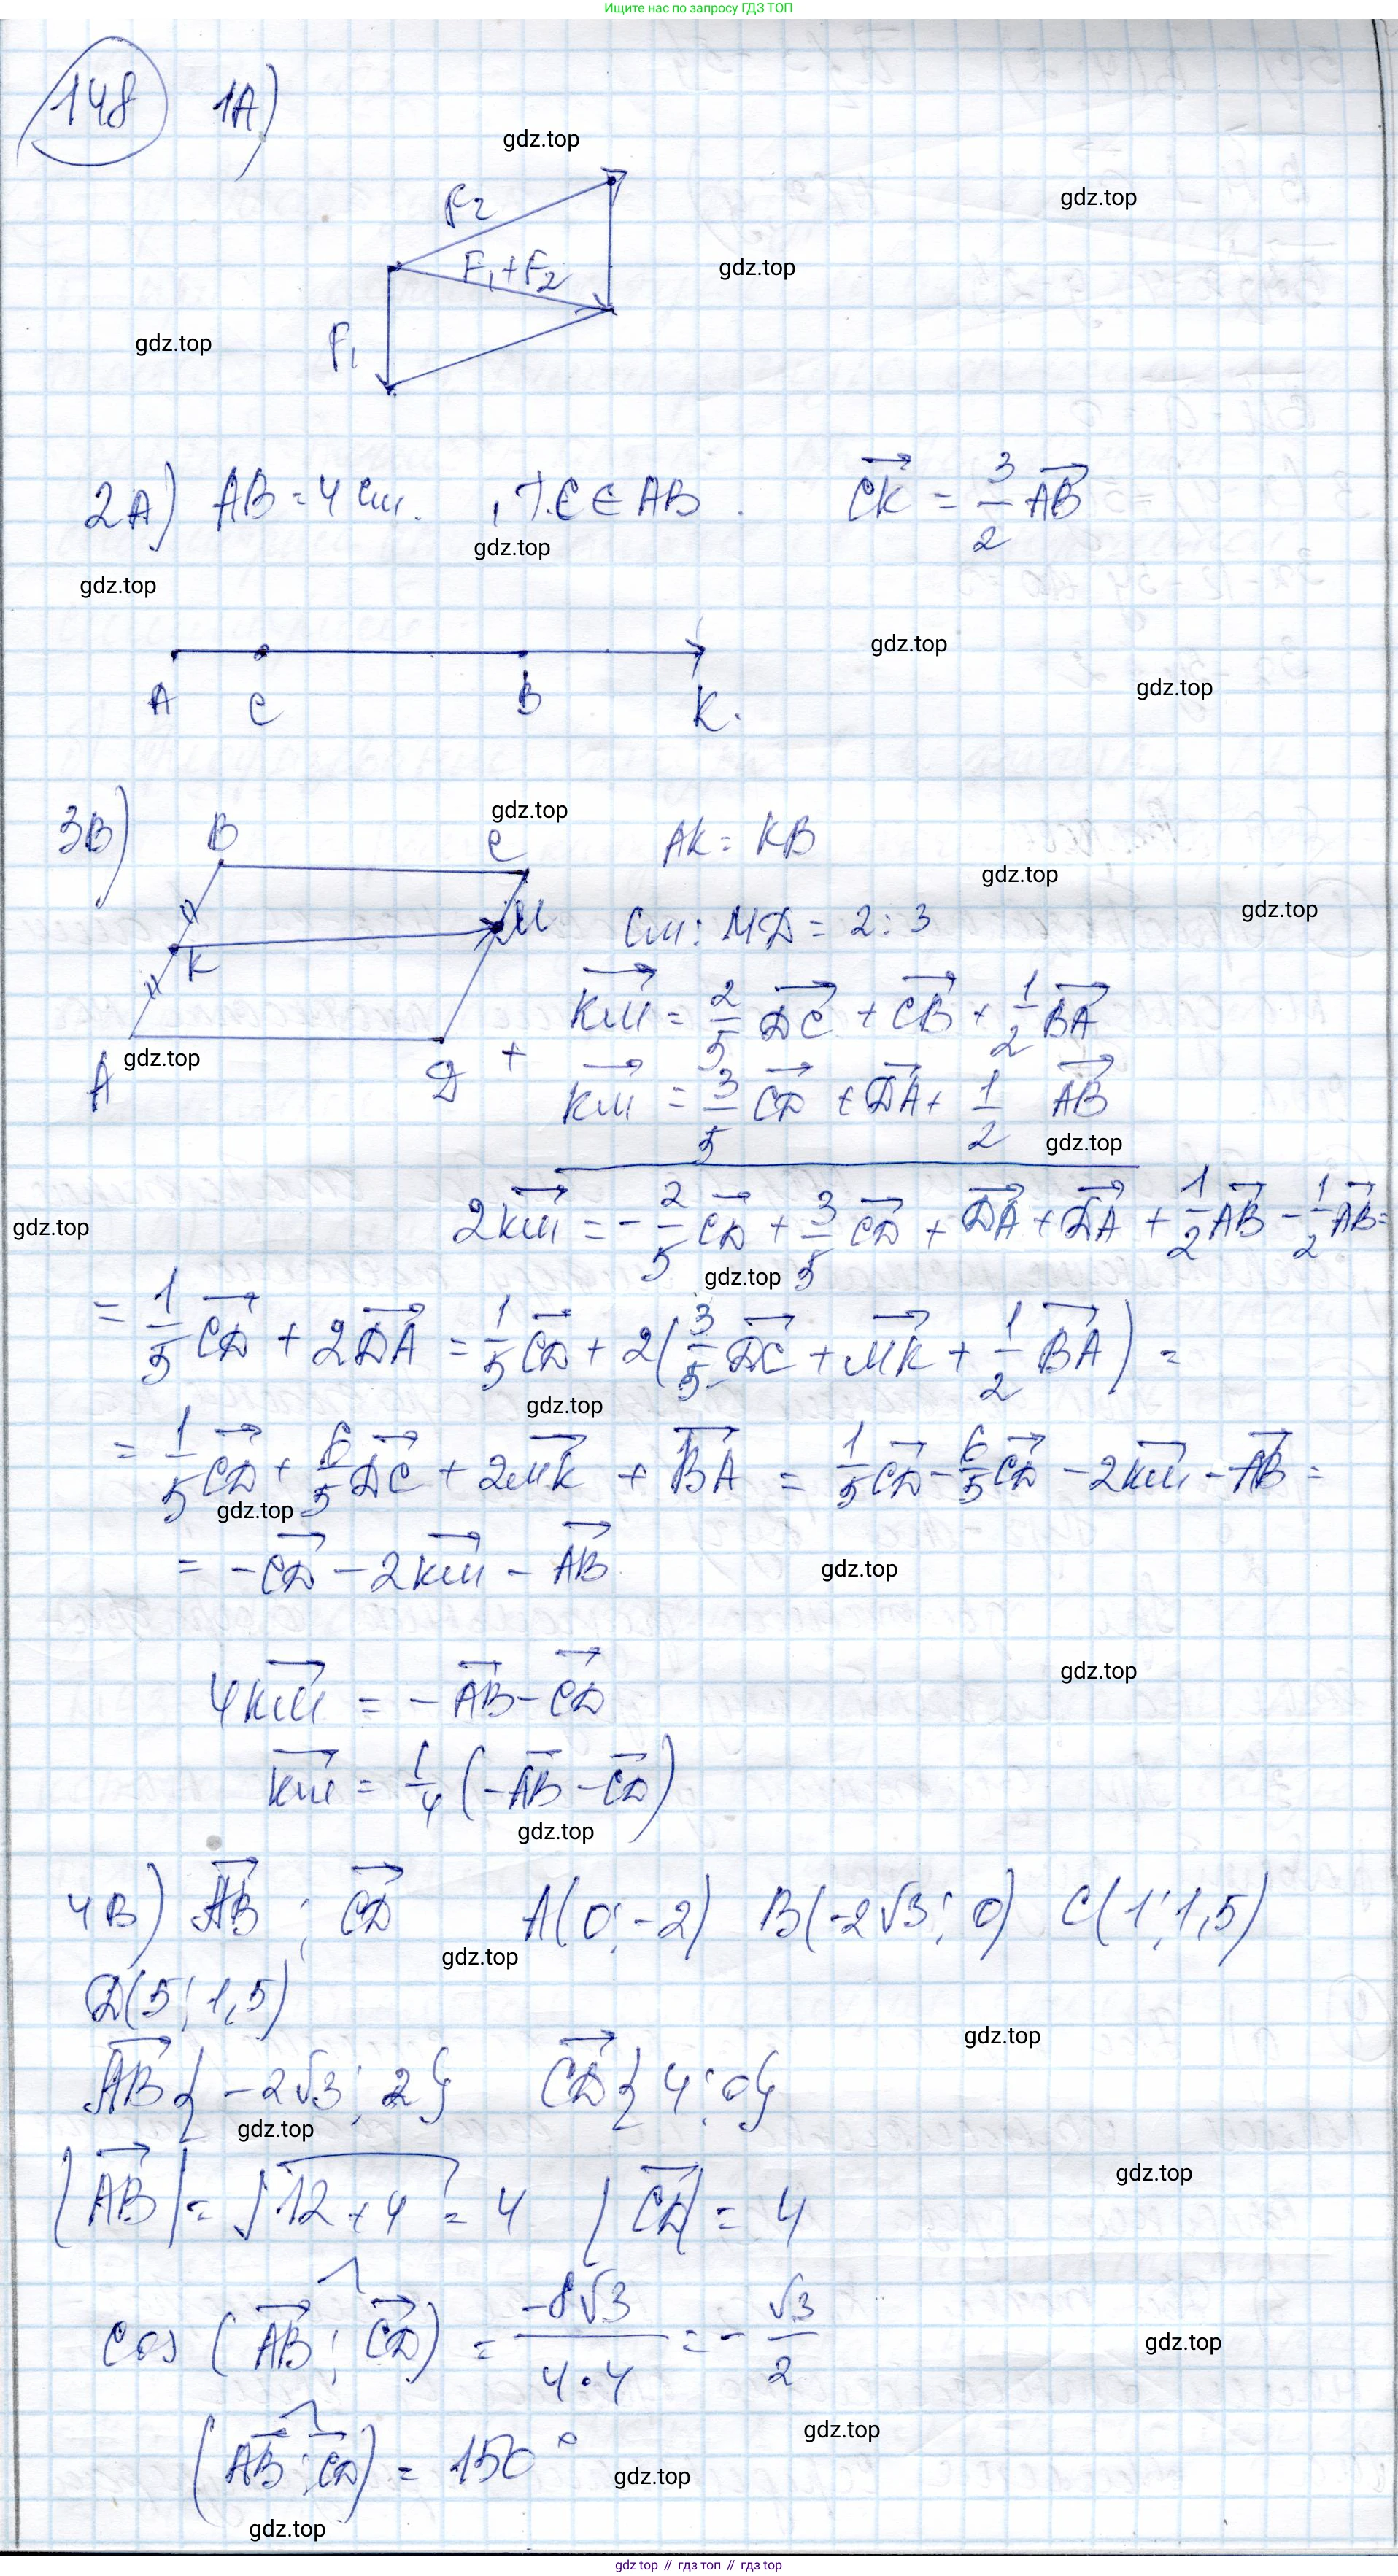 Ищите нас по запросу ГДЗ ТОП
148 1А)
gdz.top
gdz.top
F₂
F₁+F₂
gdz.top
gdz.top
F₁
2А) AB = 4 см. , т. C ∈ AB . CK = 3/2 AB
gdz.top
gdz.top
gdz.top
gdz.top
A C B K.
3В) B C AK = KB
gdz.top
gdz.top
gdz.top
M CM : MD = 2 : 3
K
KM = 2/5 DC + CB + 1/2 BA
gdz.top
A D +
KM = 3/5 CD + DA + 1/2 AB
gdz.top
2KM = -2/5 CD + 3/5 CD + DA + DA + 1/2 AB - 1/2 AB =
gdz.top
gdz.top
= 1/5 CD + 2DA = 1/5 CD + 2(3/5 DC + MK + 1/2 BA) =
gdz.top
= 1/5 CD + 6/5 DC + 2MK + BA = 1/5 CD - 6/5 CD - 2KM - AB =
gdz.top
= -CD - 2KM - AB
gdz.top
gdz.top
4KM = -AB - CD
KM = 1/4 (-AB - CD)
gdz.top
4В) AB ; CD A(0; -2) B(-2√3; 0) C(1; 1,5)
gdz.top
D(5; 1,5)
gdz.top
AB {-2√3; 2} CD {4; 0}
gdz.top
gdz.top
|AB| = √12 + 4 = 4 |CD| = 4
cos (AB; CD) = -8√3/4·4 = -√3/2
gdz.top
gdz.top
(AB; CD) = 150°
gdz.top
gdz.top
gdz top // гдз топ // gdz top